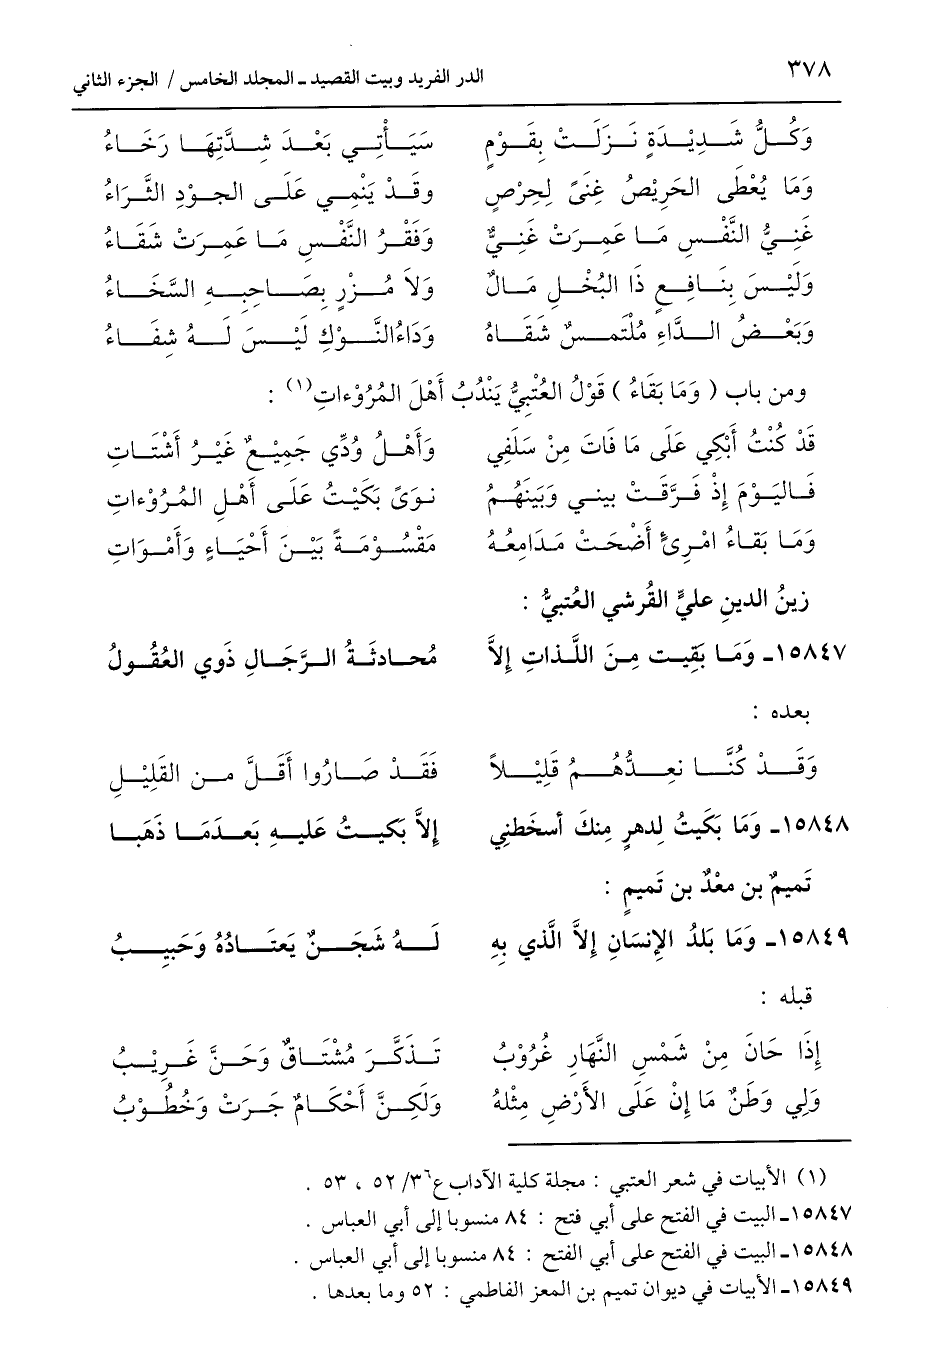 ٣٧٨ الدر الفريد وبيت القصيد ـ المجلد الخامس / الجزء الثاني
وَكُلُّ شَدِيْدَةٍ نَزَلَتْ بِقَوْمٍ سَيَأْتِي بَعْدَ شِدَّتِهَا رَخَاءُ
وَمَا يُعْطَى الحَرِيْصُ غِنَىً لِحِرْصٍ وَقَدْ يَنْمِي عَلَى الجوْدِ الثَّرَاءُ
غَنِيُّ النَّفْسِ مَا عَمِرَتْ غَنِيٌّ وَفَقْرُ النَّفْسِ مَا عَمِرَتْ شَقَاءُ
وَلَيْسَ بِنَافِعٍ ذَا البُخْلِ مَالٌ وَلَا مُزْرٍ بِصَاحِبِهِ السَّخَاءُ
وَبَعْضُ الدَّاءِ مُلْتَمِسٌ شَفَاهُ وَدَاءُالنَّوْكِ لَيْسَ لَهُ شِفَاءُ
ومن باب ( وَمَا بَقَاءُ ) قَوْلُ العُتْبِيُّ يَنْدُبُ أَهْلَ المُرُوْءَاتِ(١) :
قَدْ كُنْتُ أَبْكِي عَلَى مَا فَاتَ مِنْ سَلَفِي وَأَهْلُ وُدِّي جَمِيْعٌ غَيْرُ أَشْتَاتِ
فَاليَوْمَ إِذْ فَرَّقَتْ بيني وَبَيْنَهُمُ نَوَىً بَكَيْتُ عَلَى أَهْلِ المُرُوْءَاتِ
وَمَا بَقَاءُ امْرِئٍ أَضْحَتْ مَدَامِعُهُ مَقْسُوْمَةً بَيْنَ أَحْيَاءٍ وَأَمْوَاتِ
زينُ الدين عليٌّ القُرشي العُتبيُّ :
١٥٨٤٧ـ وَمَا بَقِيَت مِنَ اللَّذاتِ إلاَّ مُحادثَةُ الرَّجَالِ ذَوي العُقُولُ
بعده :
وَقَدْ كُنَّا نعدُّهُمُ قَلِيْلاً فَقَدْ صَارُوا أَقَلَّ من القَلِيْلِ
١٥٨٤٨ـ وَمَا بَكَيتُ لِدهرٍ مِنكَ أسخَطَني إلاَّ بَكَيتُ عَليهِ بَعدَمَا ذَهَبا
تَميمُ بن معْدٌ بن تَميمٍ :
١٥٨٤٩ـ وَمَا بَلَدُ الإنسَانِ إلاَّ الَّذي بِهِ لَهُ شَجَنٌ يَعتَادُهُ وَحَبِيبُ
قبله :
إِذَا حَانَ مِنْ شَمْسِ النَّهَارِ غُرُوْبُ تَذَكَّرَ مُشْتَاقٌ وَحَنَّ غَرِيْبُ
وَلِي وَطَنٌ مَا إِنْ عَلَى الأَرْضِ مِثْلهُ وَلَكِنَّ أَحْكَامٌ جَرَتْ وَخُطُوْبُ
(١) الأبيات في شعر العتبي : مجلة كلية الآداب ع٣٦/ ٥٢ ، ٥٣ .
١٥٨٤٧ـ البيت في الفتح على أبي فتح : ٨٤ منسوبا إلى أبي العباس .
١٥٨٤٨ـ البيت في الفتح على أبي الفتح : ٨٤ منسوبا إلى أبي العباس .
١٥٨٤٩ـ الأبيات في ديوان تميم بن المعز الفاطمي : ٥٢ وما بعدها .